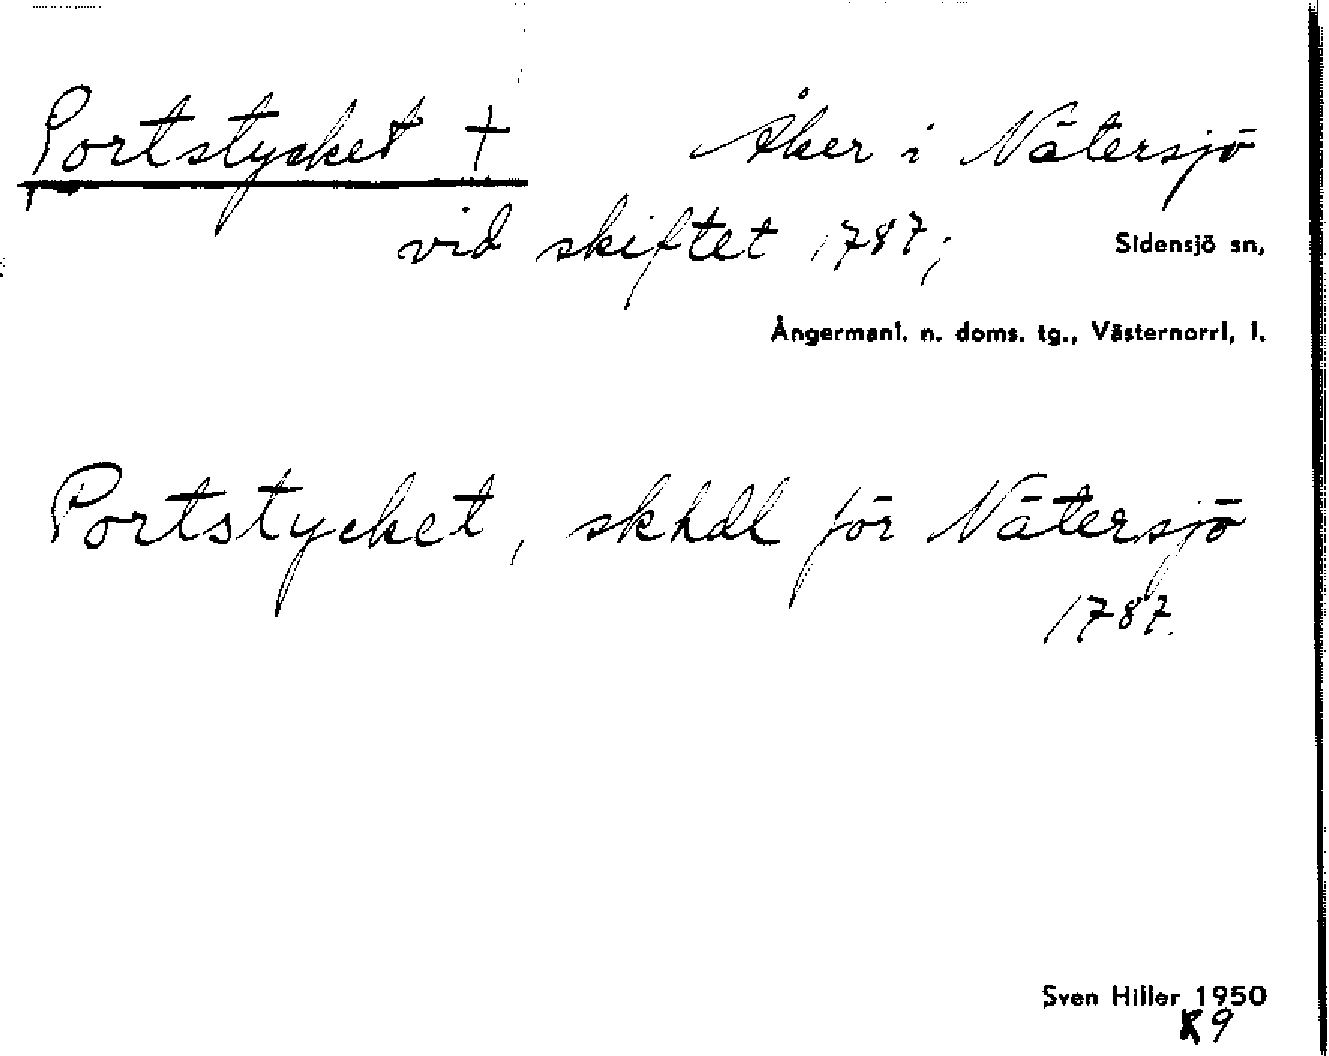 Portstycket † Åker i Nätersjö
vid skiftet 1787; Sidensjö sn,
Ångermanl. n. doms. tg., Västernorrl. l.
Portstycket, skhdl för Nätersjö
1787.
Sven Hiller 1950
K9